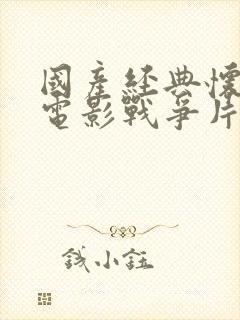 國產經典懷
電影戰爭片
錢小鈺